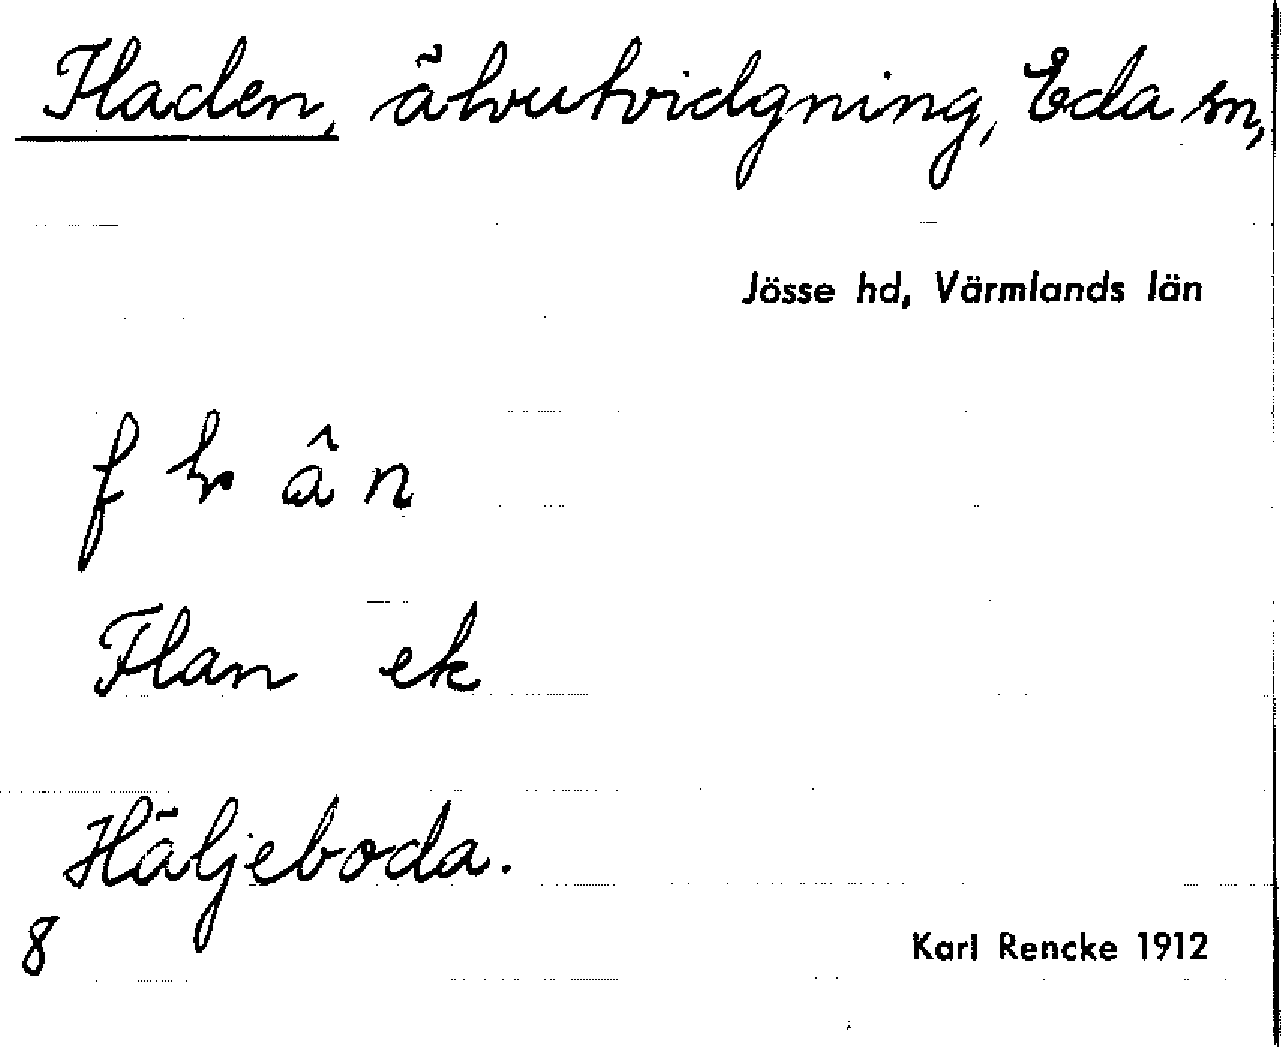 Fladen, älvutvidgning, Eda sn,
Jösse hd, Värmlands län
Flan ek
Häljeboda.
8
Karl Rencke 1912